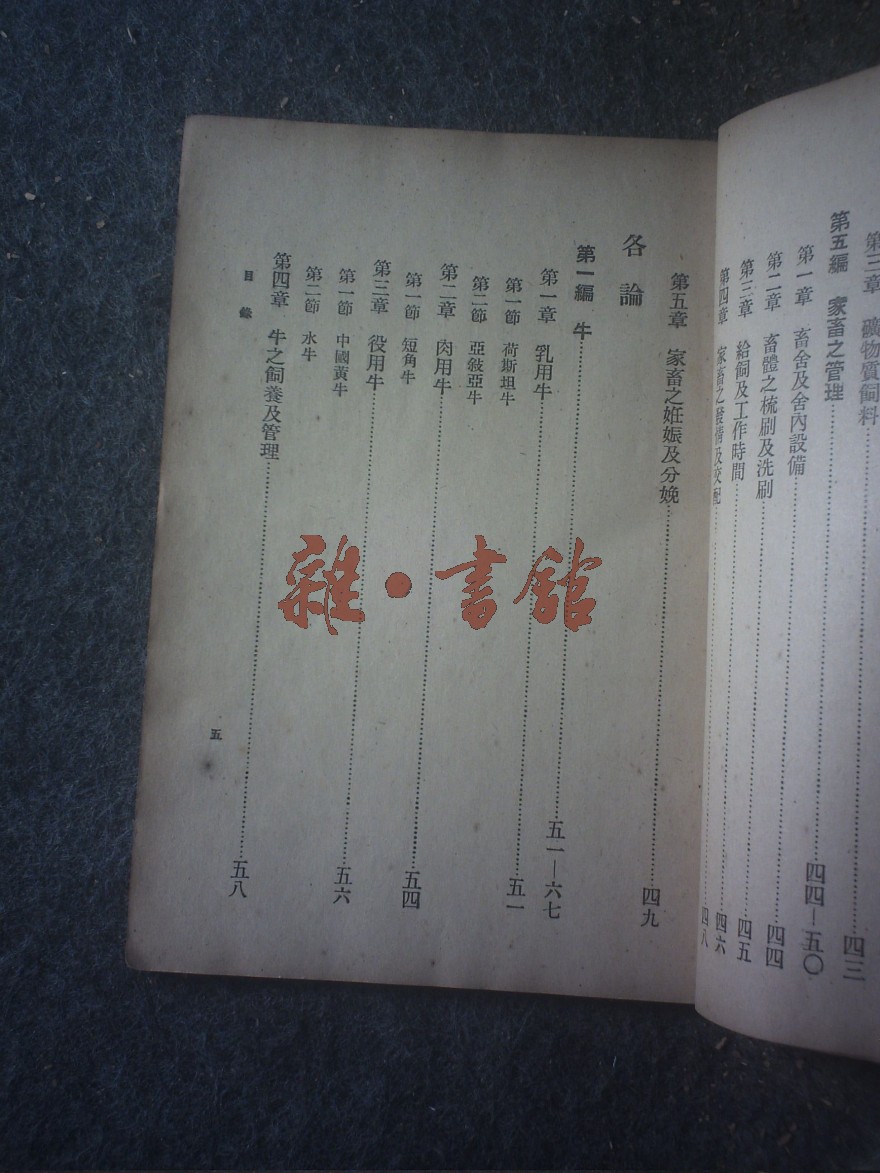 第三章 礦物質飼料……四三
第五編 家畜之管理……四四—五〇
第一章 畜舍及舍內設備……四四
第二章 畜體之梳刷及洗刷……四五
第三章 給飼及工作時間……四六
第四章 家畜之發情及交配……四八
第五章 家畜之妊娠及分娩……四九
各論
第一編 牛……五一—六七
第一章 乳用牛……五一
第一節 荷斯坦牛
第二節 亞敍亞牛
第二章 肉用牛……五四
第一節 短角牛
第三章 役用牛……五六
第一節 中國黃牛
第二節 水牛
第四章 牛之飼養及管理……五八
目錄
五
雜·書館